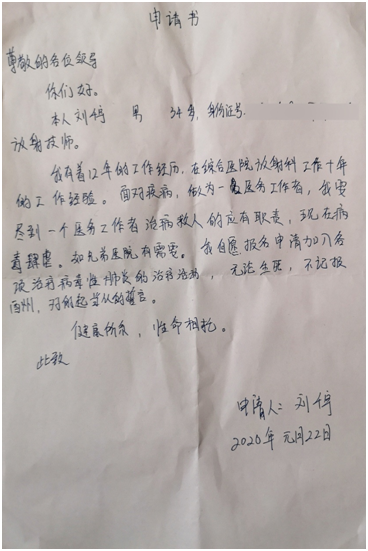 申请书
尊敬的各位领导
你们好。
本人刘停 男 34岁,身份证号
放射技师。
我有着12年的工作经历,在综合医院放射科工作十年
的工作经验。面对疫病,做为一名医务工作者,我需
尽到一个医务工作者治病救人的应有职责,现在病
毒肆虐。如兄弟医院有需要。我自愿报名申请加入各
项治疗病毒性肺炎的治疗活动,无论生死,不记报
酬,对的起当从的誓言。
健康所系,性命相托。
此致
申请人:刘停
2020年元月22日